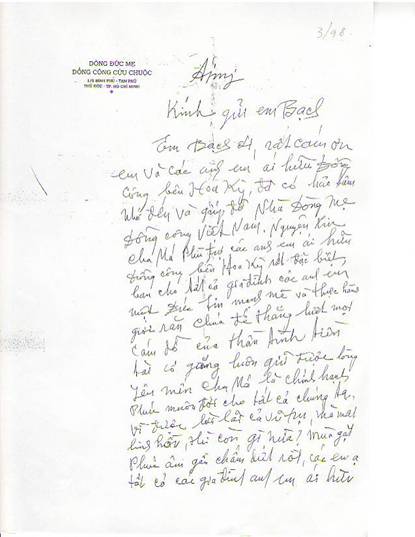 3/98
DÒNG ĐỨC MẸ
ĐỒNG CÔNG CỨU CHUỘC
THỦ ĐỨC - TP. HỒ CHÍ MINH
Kính gửi em Bạch
Em Bạch ơi, rất cám ơn
em và các anh em ái hữu Đồng
Công bên Hoa Kỳ, đã có
nhớ đến và giúp đỡ Nhà Dòng Mẹ
Đồng Công Việt Nam. Nguyện xin
Cha Má Phù trợ các anh em ái hữu
Đồng Công bên Hoa Kỳ rất đặc biệt,
ban cho tất cả gia đình các anh em
một Đức Tin mạnh mẽ và
giới răn Chúa để thắng hết mọi
cám dỗ của
tất cố gắng luôn giữ được lòng
yêu mến Cha Má là chính hạnh
phúc muôn đời cho tất cả chúng ta.
Vì được lời lãi cả vũ trụ, mà mất
linh hồn, thì còn gì nữa?
Phúc âm gần chấm dứt rồi, các em ạ
tất cả các gia đình anh em ái hữu